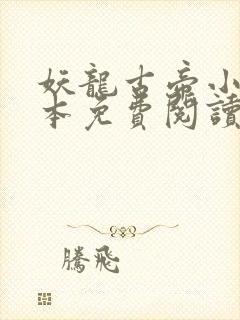 妖龍古帝小
本免費閱讀
騰飛